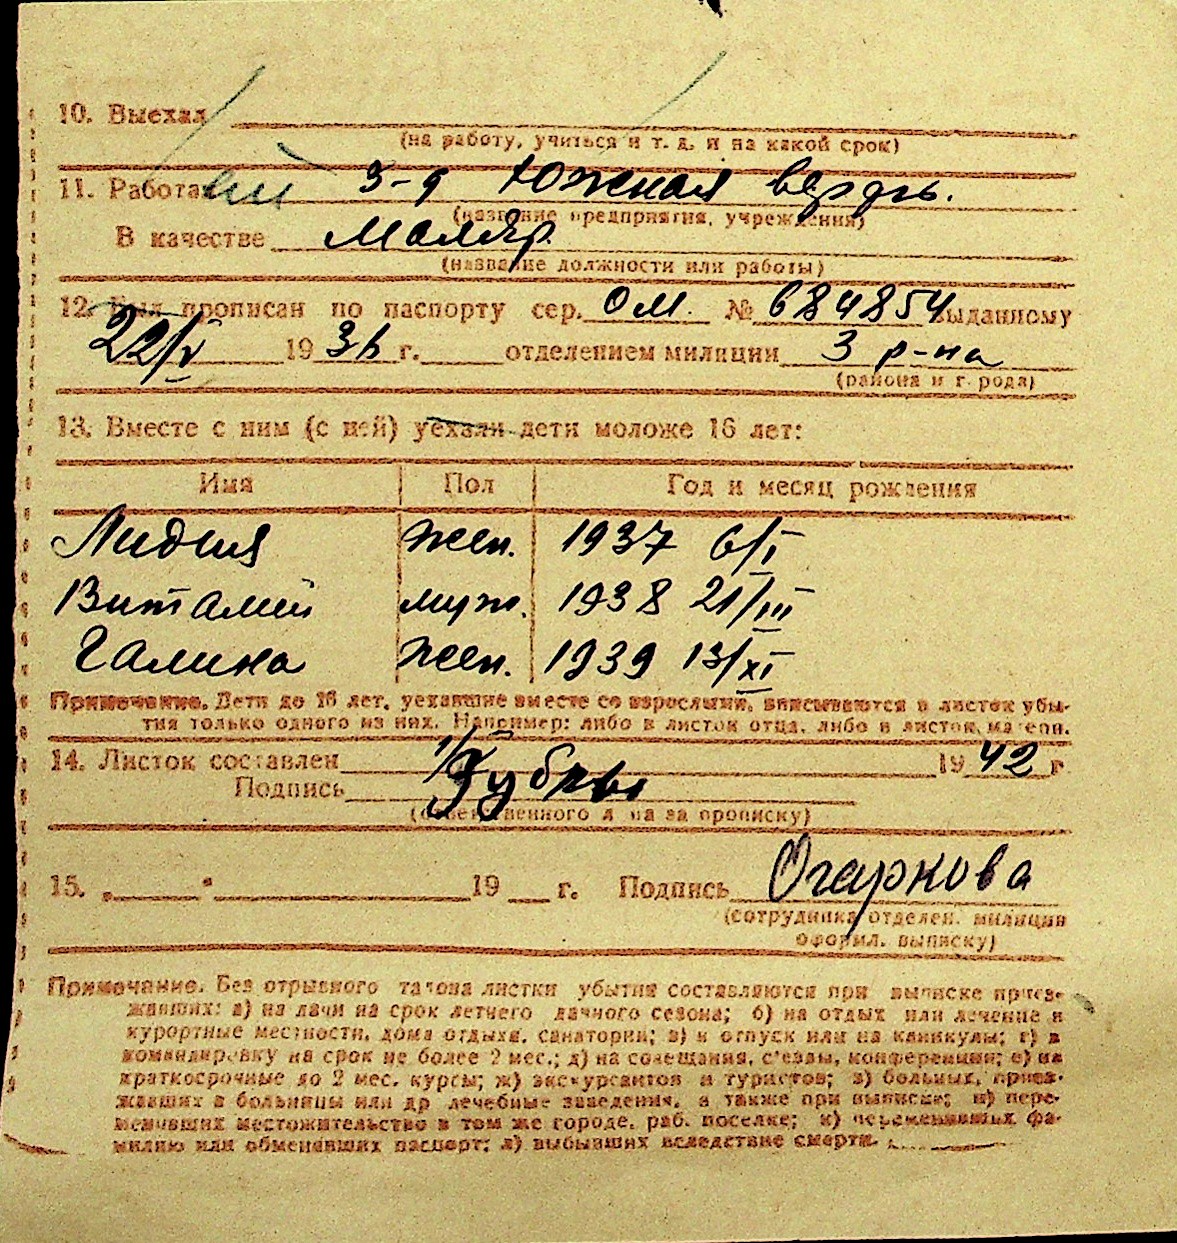 10. Выехал
(на работу, учиться и т. д. и на какой срок)
11. Работа з-д Южная верфь.
(название предприятия, учреждения)
В качестве маляр
(название должности или работы)
12. Был прописан по паспорту сер. ОМ. № 684854 выданному
22/V 1936 г. отделением милиции 3 р-на
(района и города)
13. Вместе с ним (с ней) уехали дети моложе 16 лет:
Имя Пол Год и месяц рождения
Лидия жен. 1937 6/I
Виталий муж. 1938 21/III
Галина жен. 1939 13/XI
Примечание. Дети до 16 лет, уехавшие вместе со взрослыми, вписываются в листок убы-
тия только одного из них. Например: либо в листок отца, либо в листок матери.
14. Листок составлен 1942 г
Подпись
(ответственного лица за прописку)
15. „ “ 19 г. Подпись Огаркова
(сотрудника отделен. милиции
оформл. выписку)
Примечание. Без отрывного талона листки убытия составляются при выписке приез-
жавших: а) на дачи на срок летнего дачного сезона; б) на отдых или лечение в
курортные местности, дома отдыха, санатории; в) в отпуск или на каникулы; г) в
командировку на срок не более 2 мес.; д) на совещания, съезды, конференции; е) на
краткосрочные до 2 мес. курсы; ж) экскурсантов и туристов; з) больных, приез-
жавших в больницы или др лечебные заведения, а также при выписке; и) пере-
менивших местожительство в том же городе, раб. поселке; к) переменивших фа-
милию или обменявших паспорт; л) выбывших вследствие смерти.